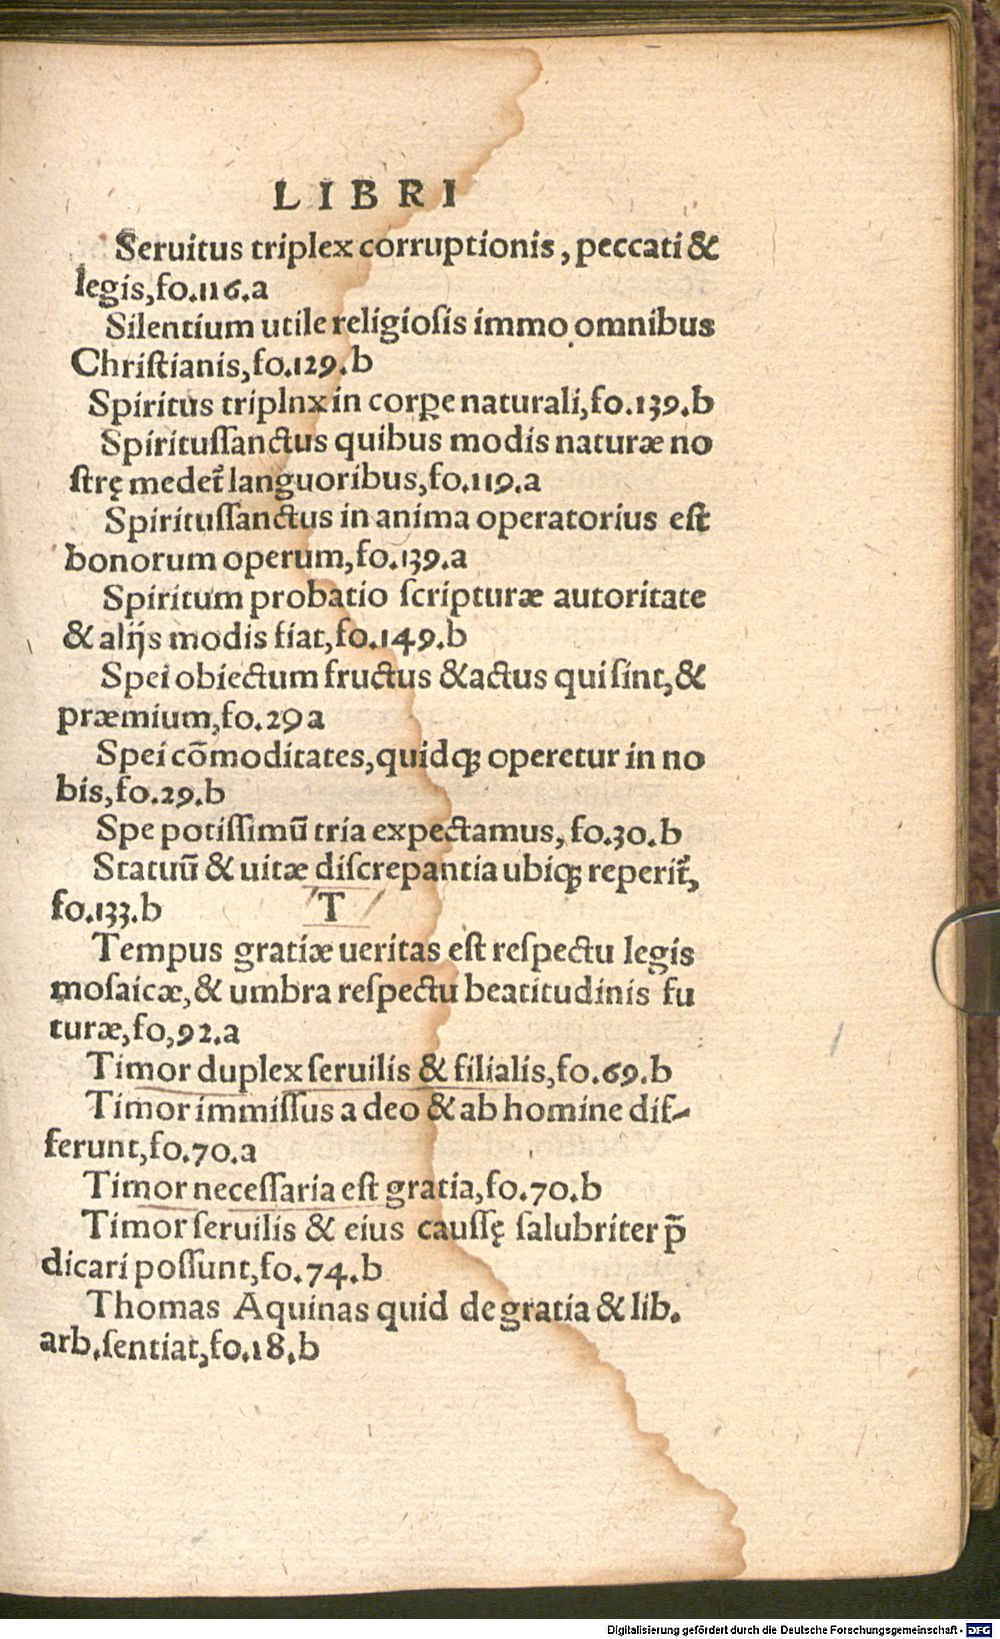 LIBRI
Seruitus triplex corruptionis, peccati &
legis, fo.116.a
Silentium utile religiosis immo omnibus
Chriſtianis, fo.129.b
Spiritus triplnx in corꝑe naturali, fo.139.b
Spirituſſanctus quibus modis naturæ no
ſtrę medet᷑ languoribus, fo.119.a
Spirituſſanctus in anima operatorius eſt
bonorum operum, fo.139.a
Spiritum probatio ſcripturæ autoritate
& alijs modis fiat, fo.149.b
Spei obiectum fructus & actus qui ſint, &
præmium, fo.29 a
Spei cōmoditates, quidqꝫ operetur in no
bis, fo.29.b
Spe potiſſimū tria expectamus, fo.30.b
Statuū & uitæ diſcrepantia ubiqꝫ reperit᷑,
fo.133.b T
Tempus gratiæ ueritas eſt reſpectu legis
moſaicæ, & umbra reſpectu beatitudinis fu
turæ, fo, 92.a
Timor duplex ſeruilis & filialis, fo.69.b
Timor immiſſus a deo & ab homine dif-
ferunt, fo.70.a
Timor neceſſaria eſt gratia, fo.70.b
Timor ſeruilis & eius cauſſę ſalubriter p̄
dicari poſſunt, fo.74.b
Thomas Aquinas quid de gratia & lib.
arb. ſentiat, fo.18.b
Digitalisierung gefördert durch die Deutsche Forschungsgemeinschaft - DFG